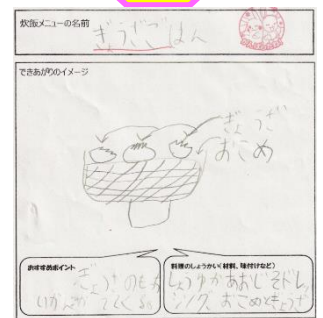 炊飯メニューの名前
ぎょうざごはん
できあがりのイメージ
ぎょうざ
おこめ
おすすめポイント
料理のしょうかい(材料、味付けなど)
しょうゆかあおじそドレ
ッシング、おこめとぎょうざ